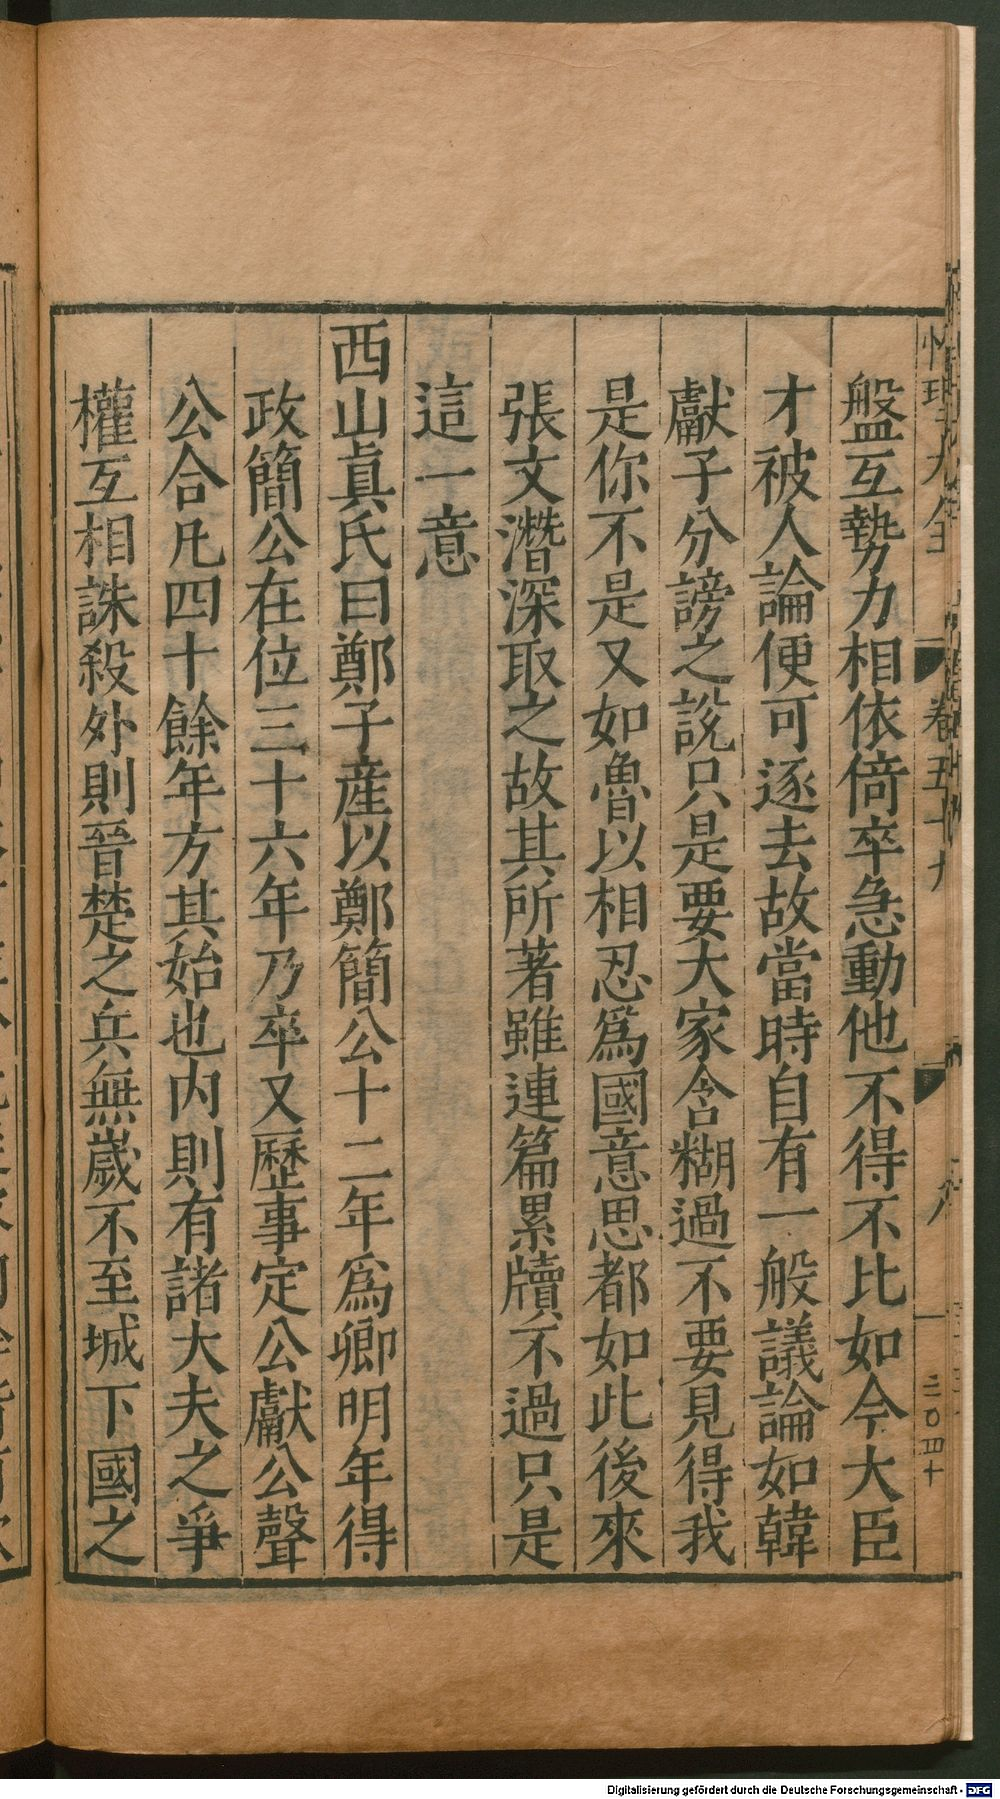 盤互勢力相依倚卒急動他不得不比如今大臣
才被人論便可逐去故當時自有一般議論如韓
獻子分謗之說只是要大家含糊過不要見得我
是你不是又如魯以相忍爲國意思都如此後來
張文潛深取之故其所著雖連篇累牘不過只是
這一意
西山眞氏曰鄭子產以鄭簡公十二年爲卿明年得
政簡公在位三十六年乃卒又歷事定公獻公聲
公合凡四十餘年方其始也内則有諸大夫之爭
權互相誅殺外則晉楚之兵無歲不至城下國之
Digitalisierung gefördert durch die Deutsche Forschungsgemeinschaft - DFG